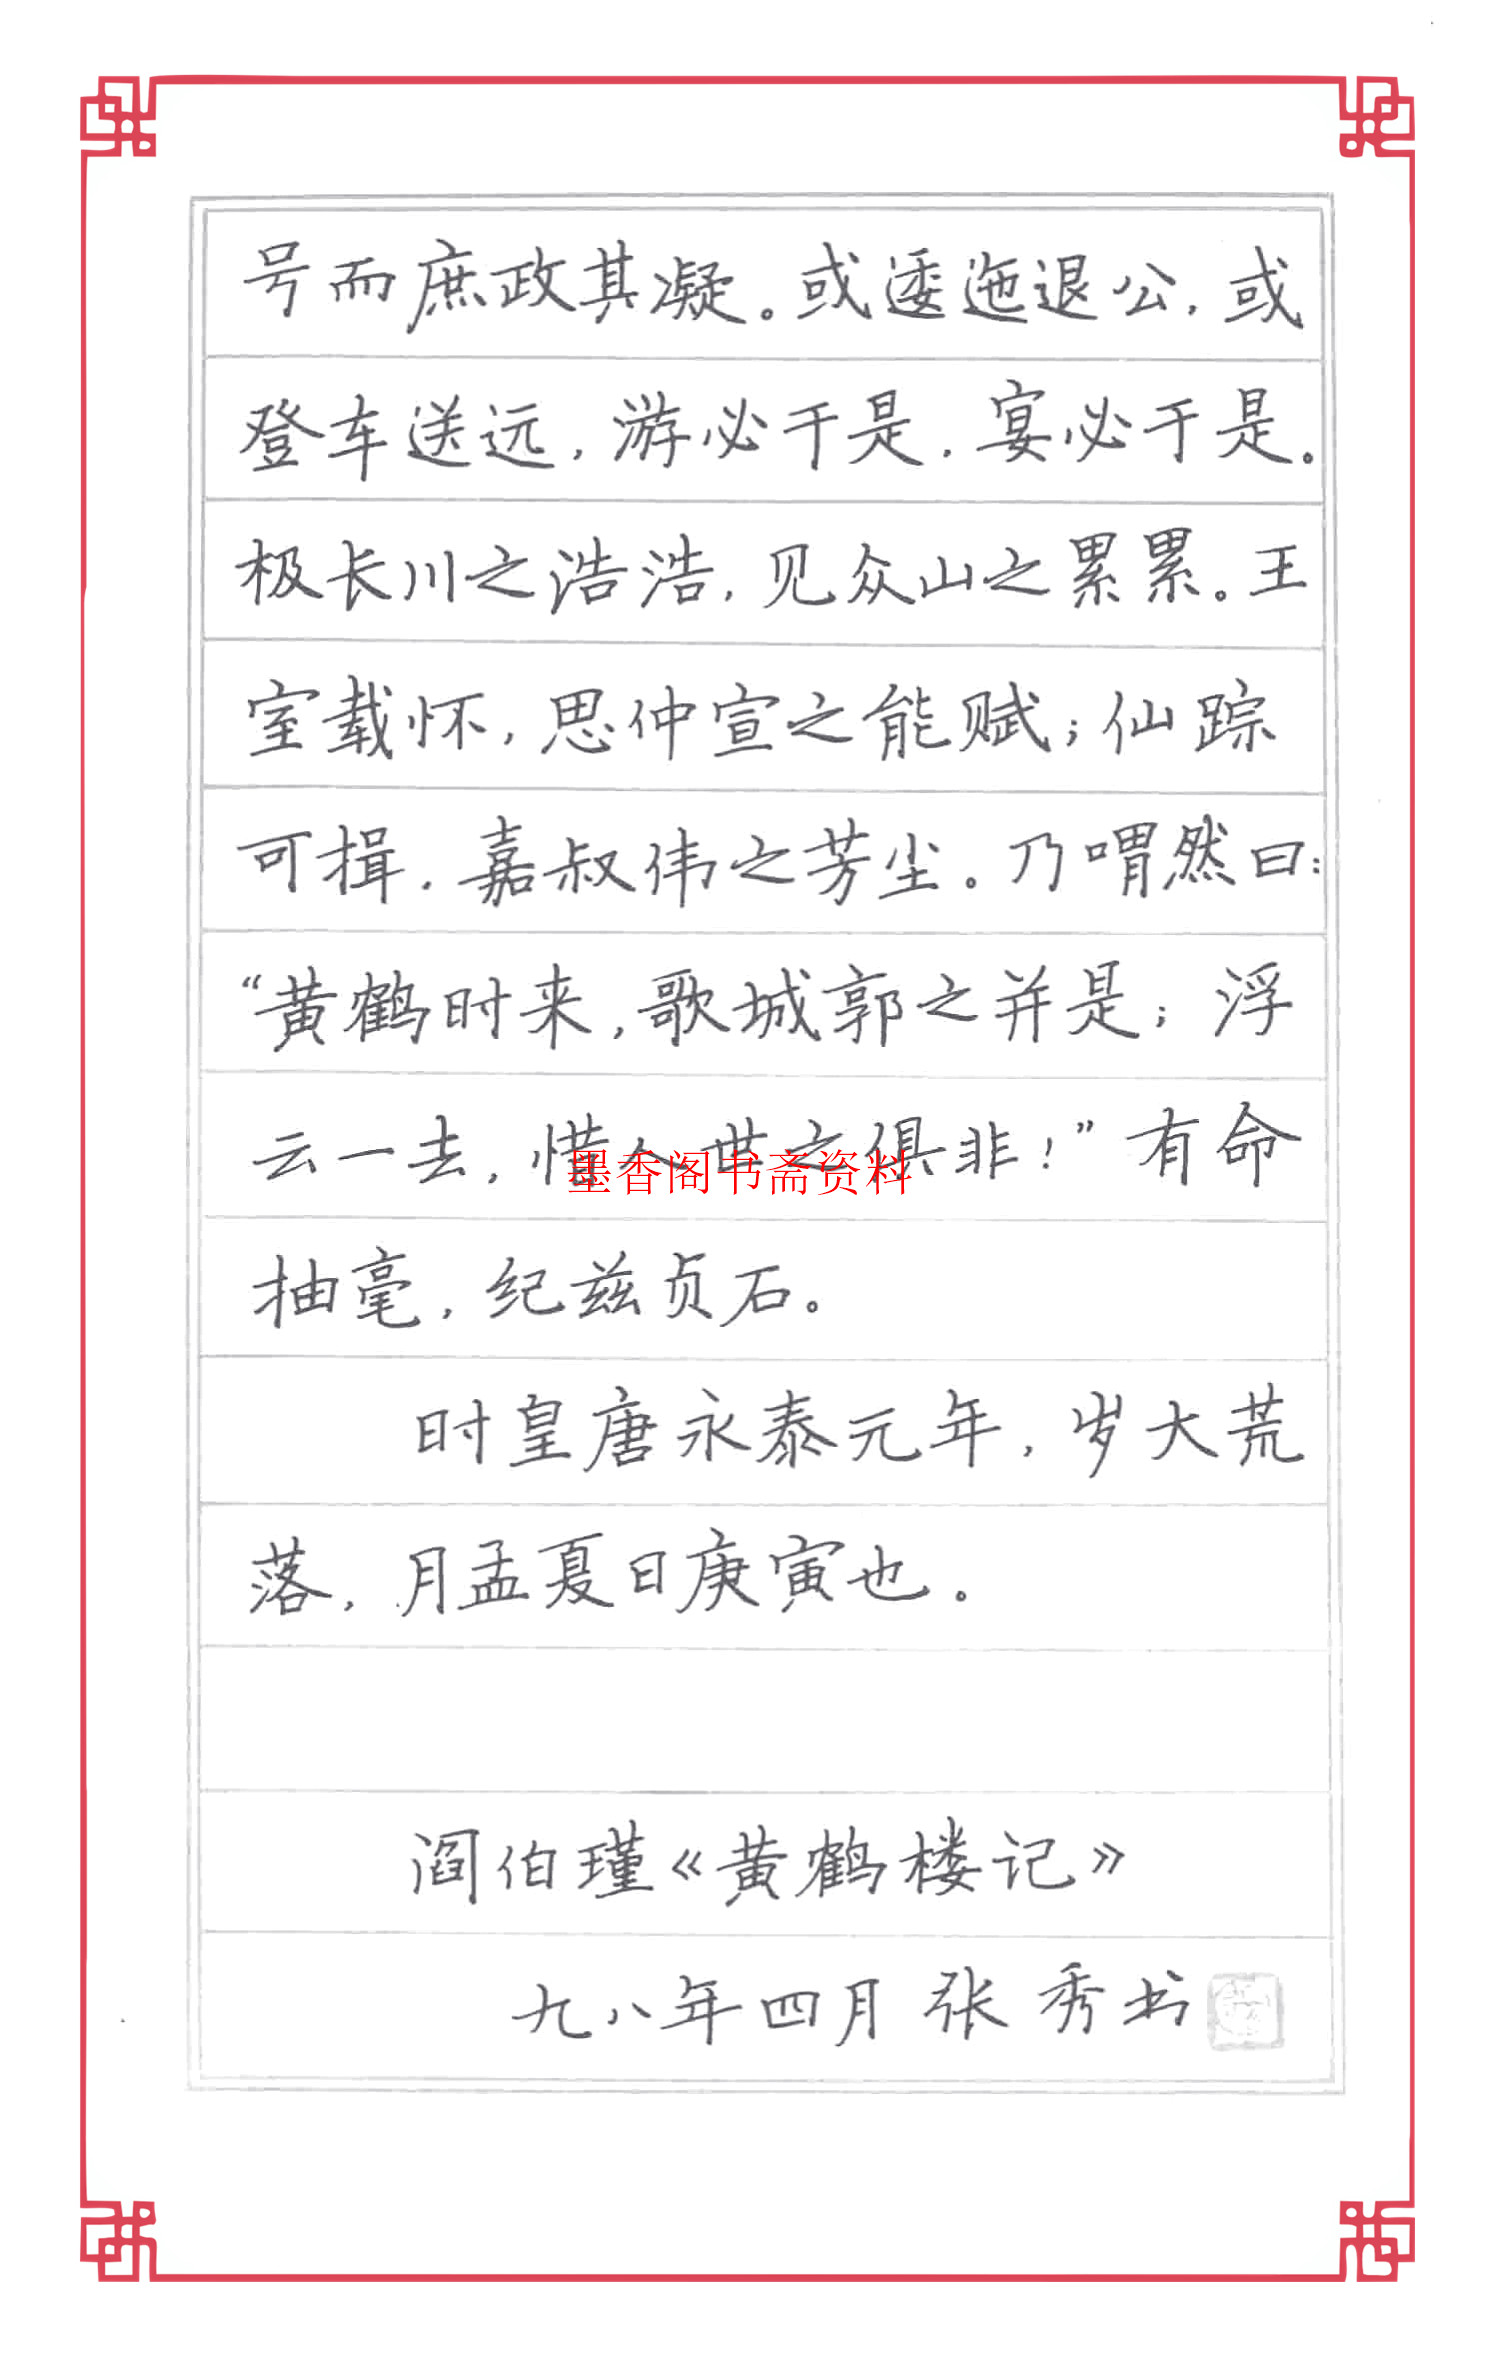 号而庶政其凝。或逶迤退公，或
登车送远，游必于是，宴必于是。
极长川之浩浩，见众山之累累。王
室载怀，思仲宣之能赋；仙踪
可揖，嘉叔伟之芳尘。乃喟然曰：
“黄鹤时来，歌城郭之并是；浮
云一去，惜人世之俱非！”有命
墨香阁书斋资料
抽毫，纪兹贞石。
时皇唐永泰元年，岁大荒
落，月孟夏日庚寅也。
阎伯瑾《黄鹤楼记》
九八年四月 张秀书